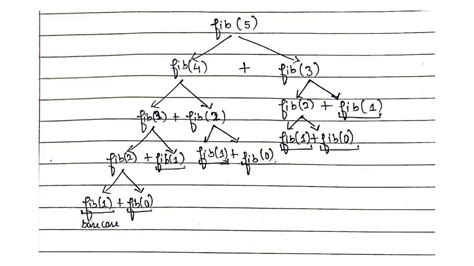 fib(5)
fib(4) + fib(3)
fib(3) + fib(2) fib(2) + fib(1)
fib(2) + fib(1) fib(1) + fib(0) fib(1) + fib(0)
fib(1) + fib(0)
base case